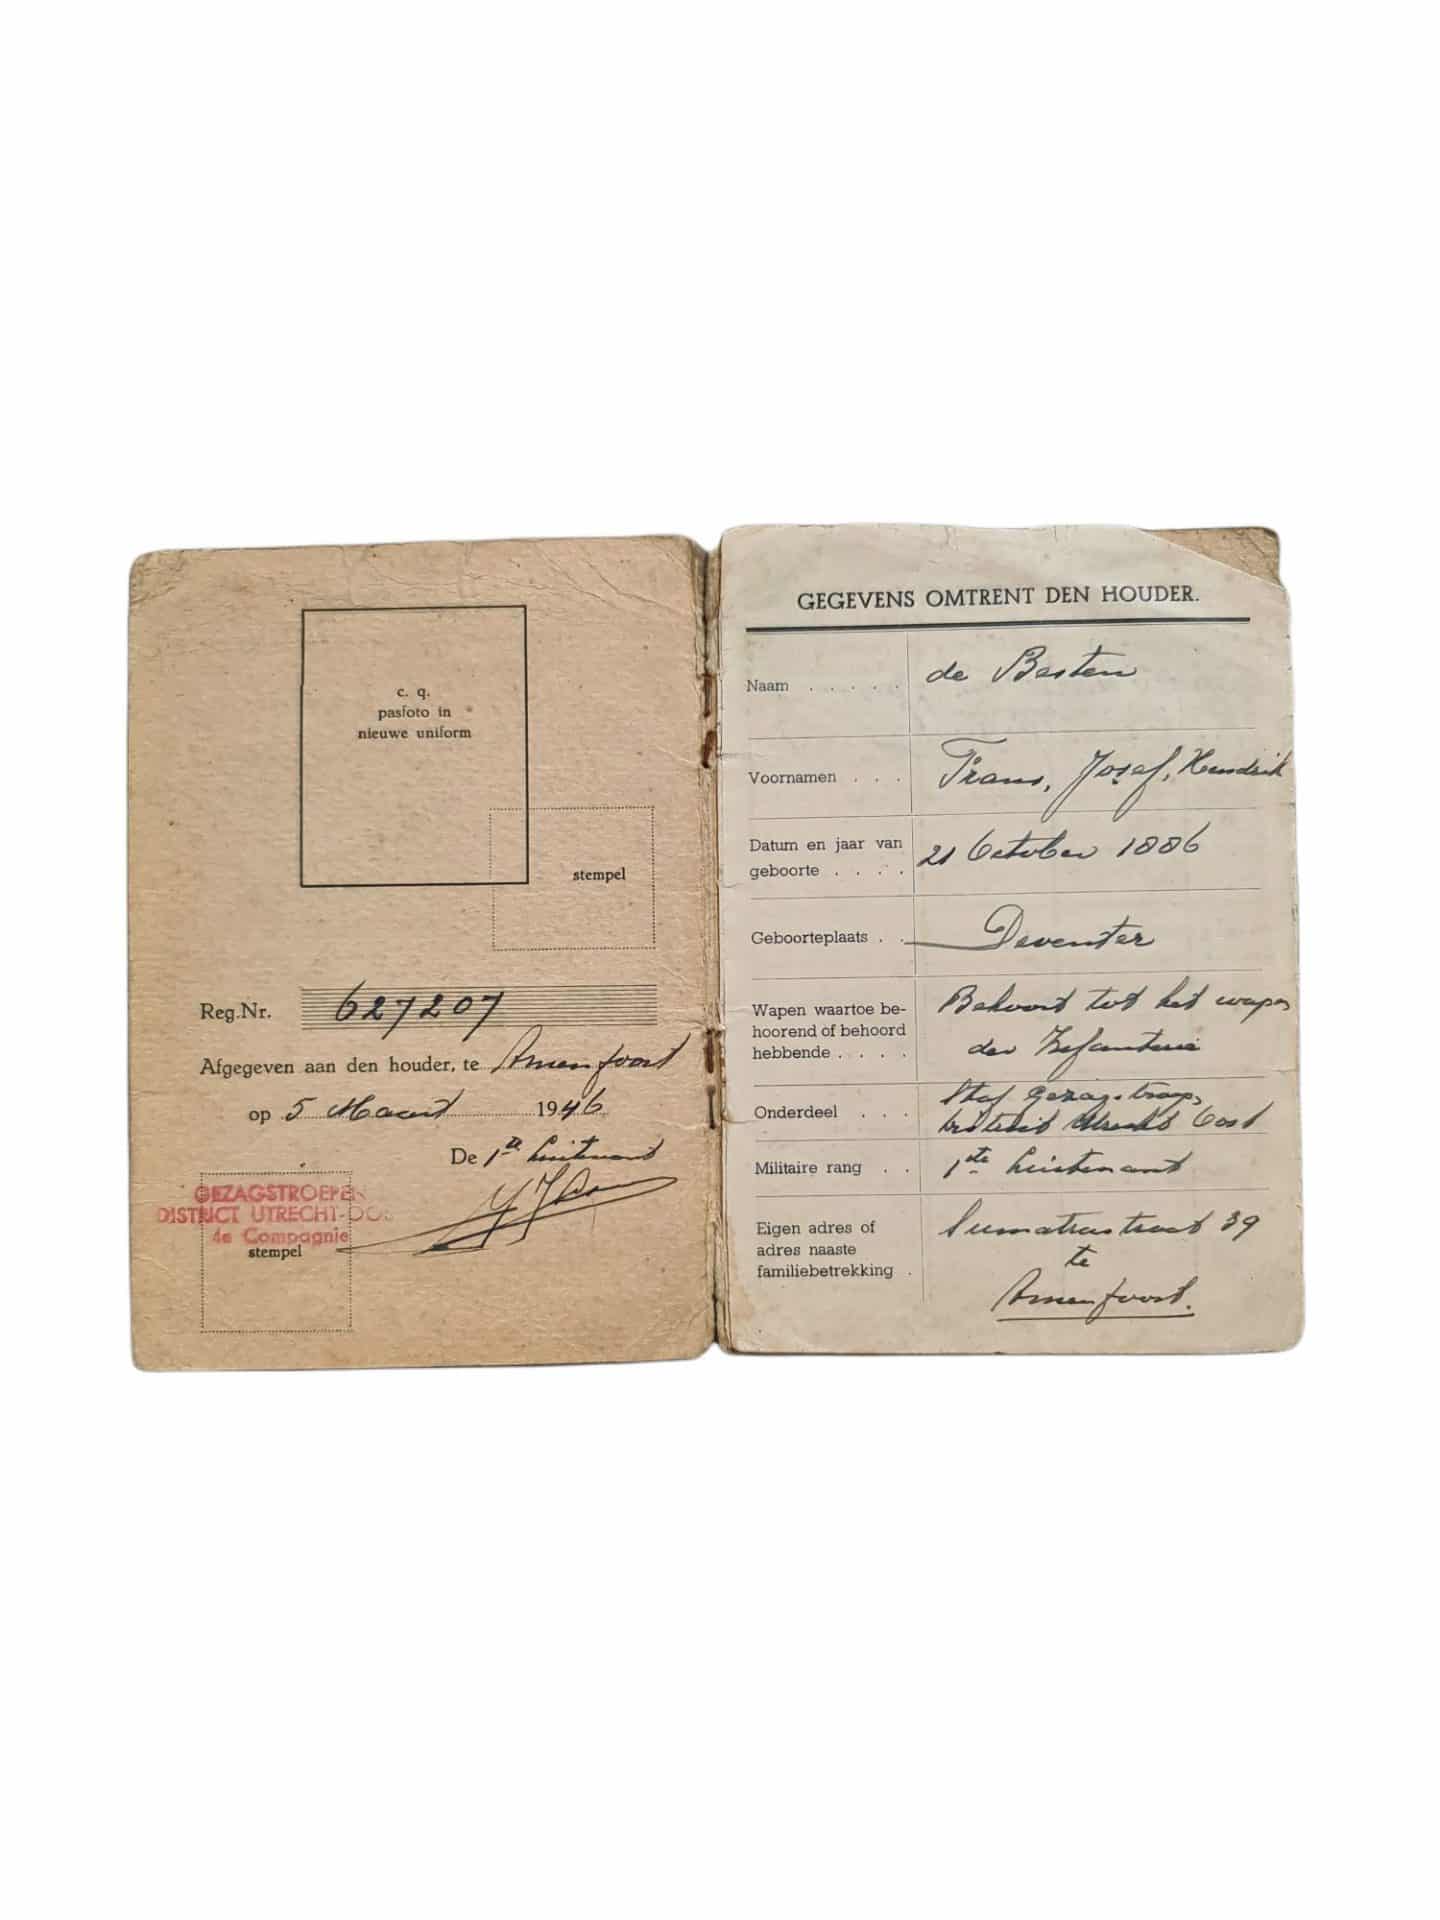 c. q.
pasfoto in
nieuwe uniform
stempel
Reg.Nr. 627207
Afgegeven aan den houder, te Amersfoort
op 5 Maart 1946
De 1e luitenant
GEZAGSTROEPEN
DISTRICT UTRECHT-OOS
4e Compagnie
stempel
GEGEVENS OMTRENT DEN HOUDER.
Naam . . . . . de Besten
Voornamen . . . Frans, Josef, Hendrik
Datum en jaar van
geboorte . . . . 21 October 1886
Geboorteplaats . . Deventer
Wapen waartoe be- Behoort tot het wapen
hoorend of behoord der Infanterie
hebbende . . . .
Onderdeel . . . Staf Gezagstroep,
District Utrecht Oost
Militaire rang . . 1ste Luitenant
Eigen adres of Sumatrastraat 39
adres naaste te
familiebetrekking . Amersfoort.